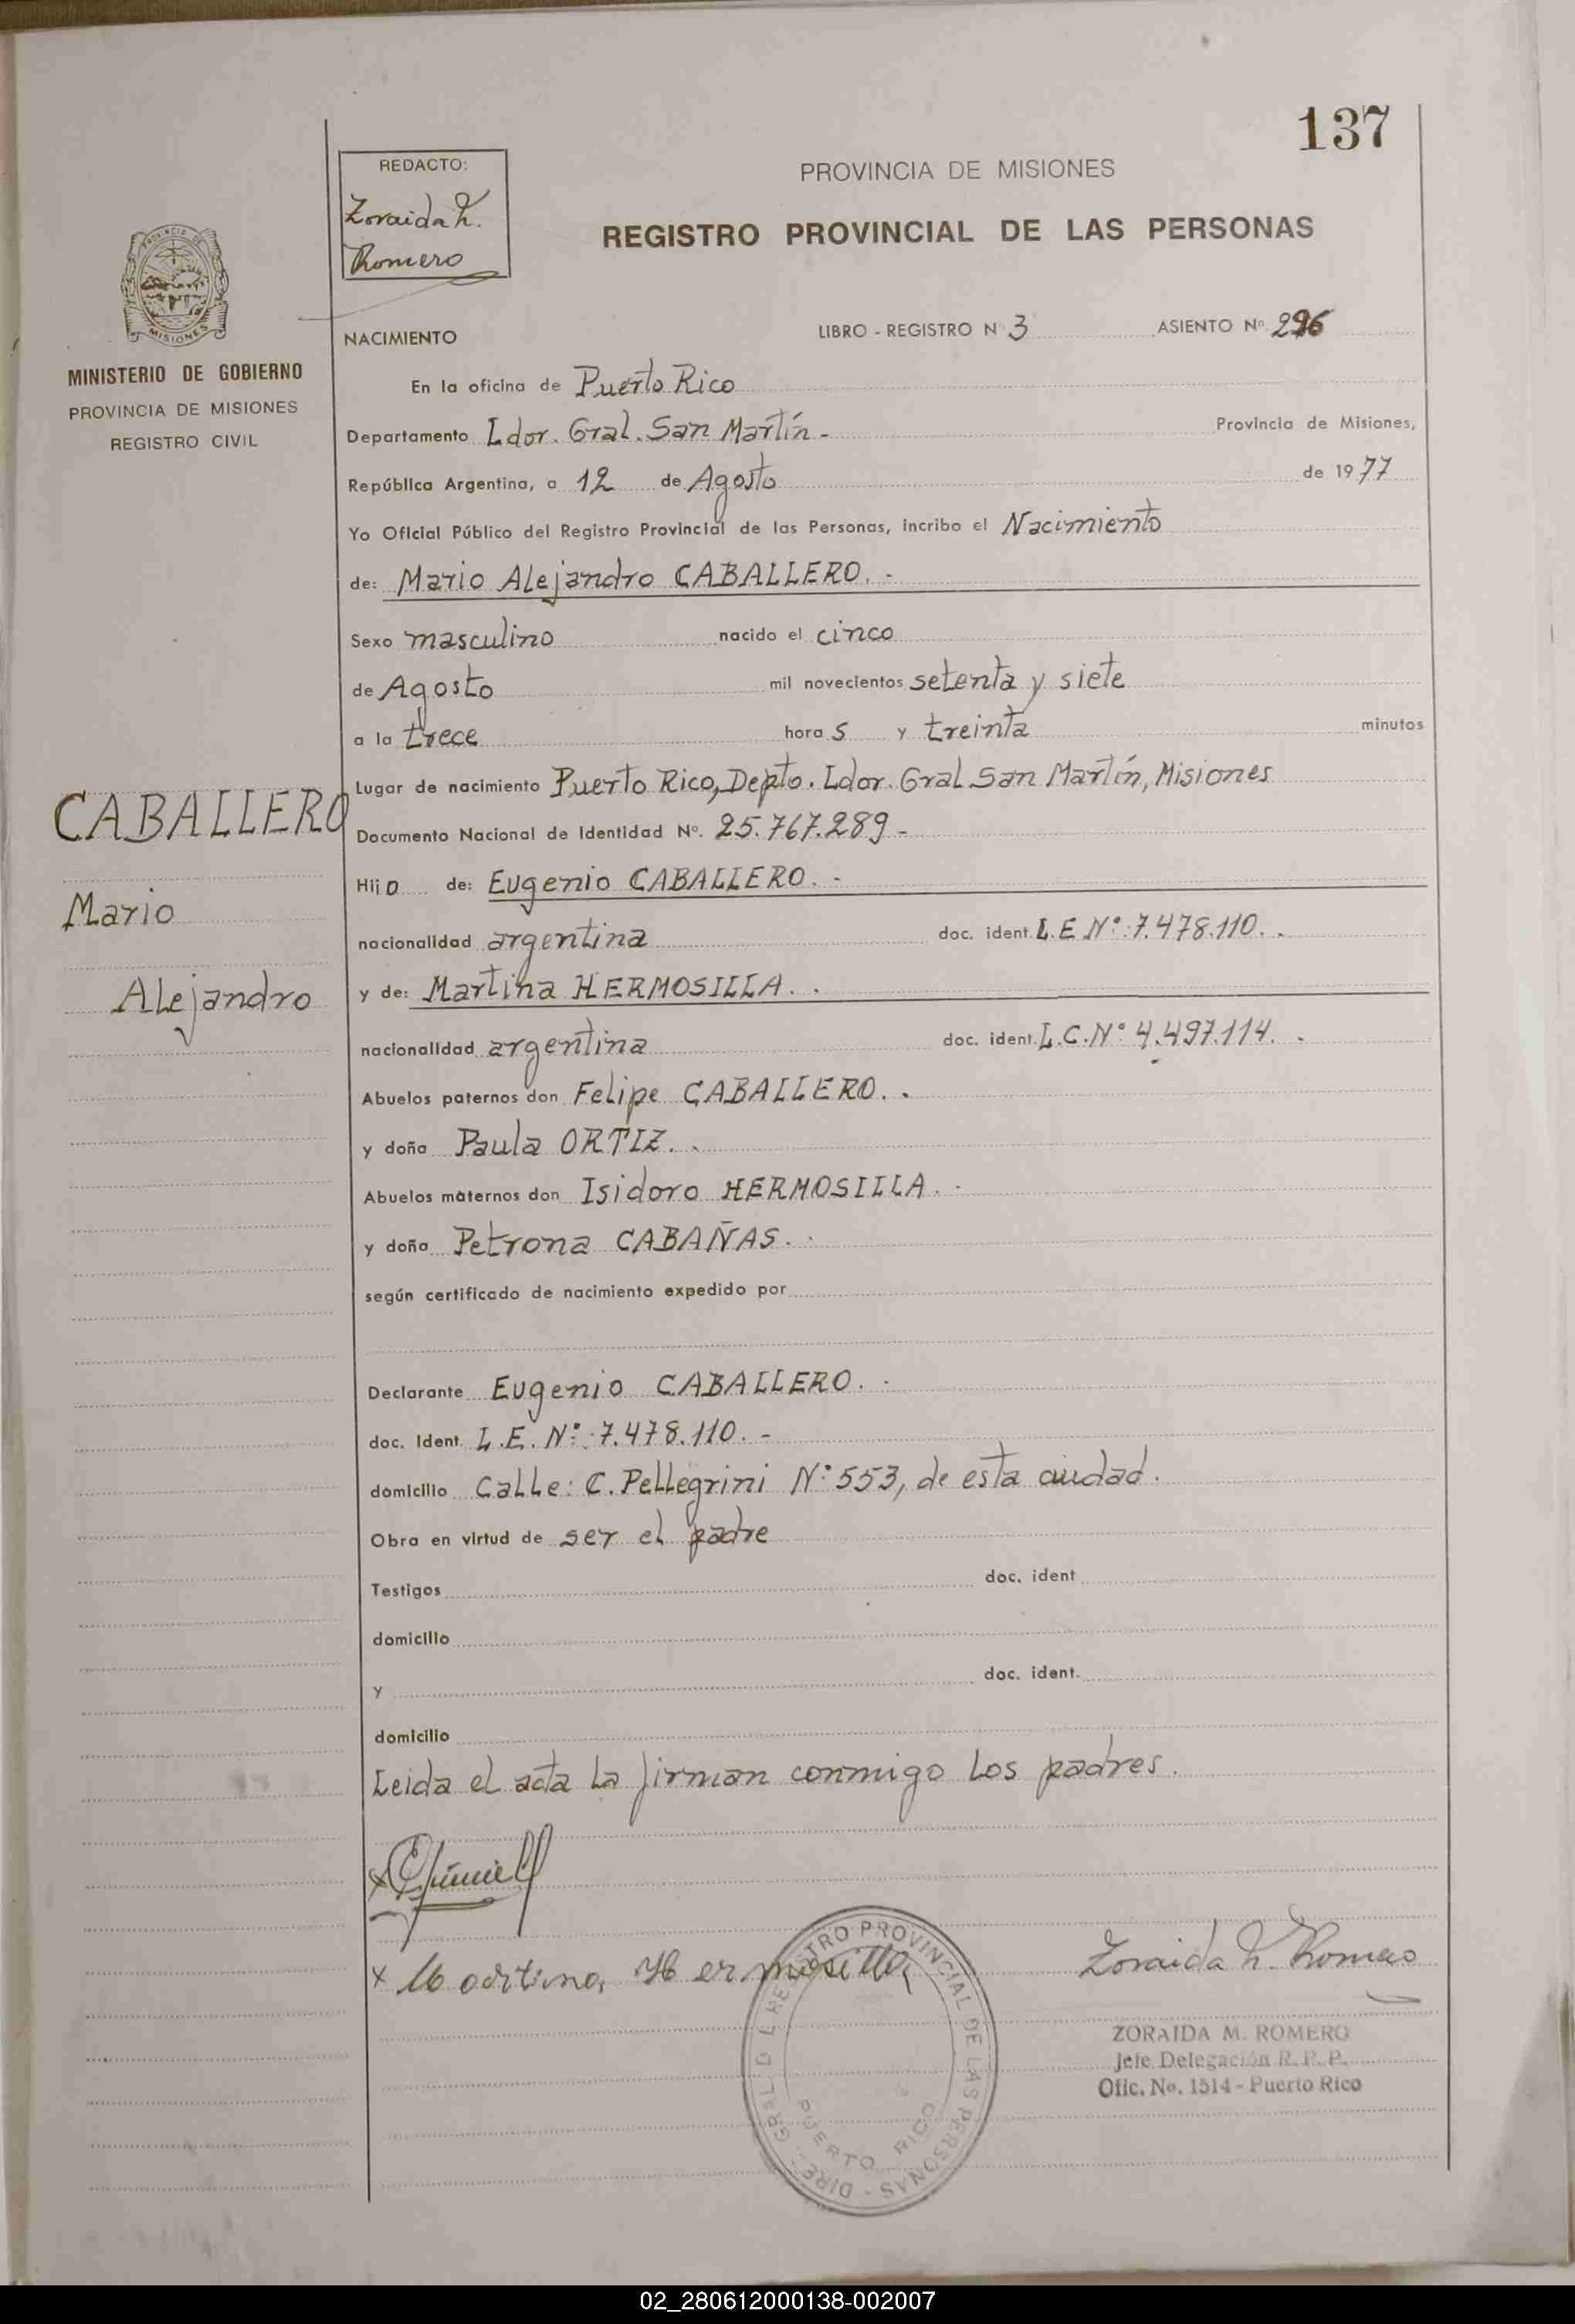 137
REDACTO:
Zoraida M.
Romero
PROVINCIA DE MISIONES
REGISTRO PROVINCIAL DE LAS PERSONAS
PROVINCIA DE
MISIONES
MINISTERIO DE GOBIERNO
PROVINCIA DE MISIONES
REGISTRO CIVIL
NACIMIENTO LIBRO - REGISTRO N 3 ASIENTO Nº 296
En la oficina de Puerto Rico
Departamento Ldor. Gral. San Martín - Provincia de Misiones,
República Argentina, a 12 de Agosto de 1977
Yo Oficial Público del Registro Provincial de las Personas, incribo el Nacimiento
de: Mario Alejandro CABALLERO. -
Sexo masculino nacido el cinco
de Agosto mil novecientos setenta y siete
a la trece hora s y treinta minutos
Lugar de nacimiento Puerto Rico, Depto. Ldor. Gral. San Martín, Misiones
CABALLERO
Mario
Alejandro
Documento Nacional de Identidad Nº. 25.767.289 -
Hijo de: Eugenio CABALLERO. -
nacionalidad argentina doc. ident. L.E Nº: 7.478.110. -
y de: Martina HERMOSILLA. .
nacionalidad argentina doc. ident. L.C. Nº 4.497.114. -
Abuelos paternos don Felipe CABALLERO. .
y doña Paula ORTIZ. .
Abuelos maternos don Isidoro HERMOSILLA. -
y doña Petrona CABAÑAS. .
según certificado de nacimiento expedido por
Declarante Eugenio CABALLERO. -
doc. Ident. L.E. Nº: 7.478.110. -
domicilio Calle: C. Pellegrini Nº 553, de esta ciudad.
Obra en virtud de ser el padre
Testigos doc. ident
domicilio
y doc. ident.
domicilio
Leida el acta la firman conmigo los padres.
x Martina Hermosilla
Zoraida M. Romero
DIRE - GRAL D L REGISTRO PROVINCIAL DE LAS PERSONAS -
PUERTO RICO
ZORAIDA M. ROMERO
Jefe Delegación R. P. P.
Ofic. No. 1514 - Puerto Rico
02_280612000138-002007